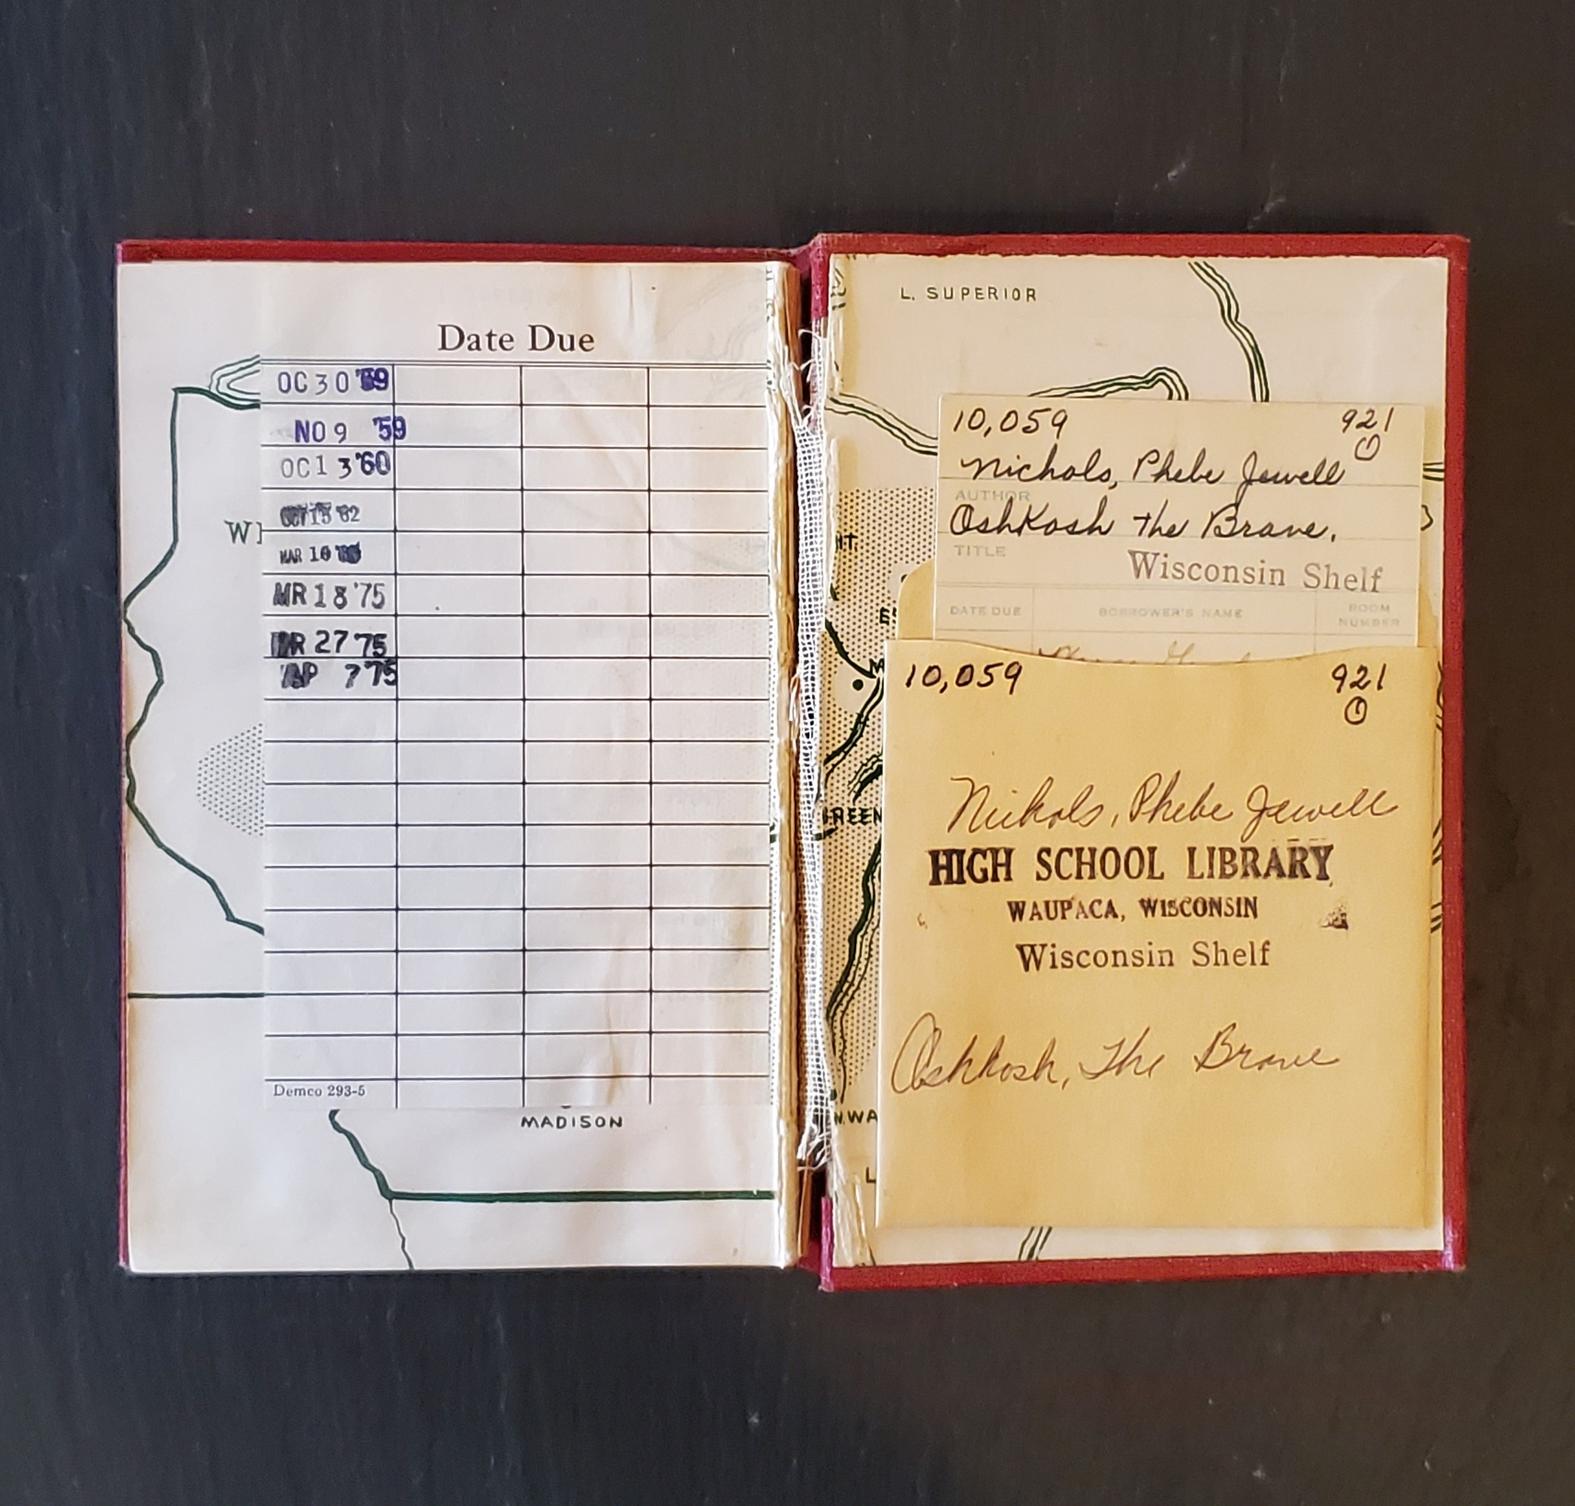 Date Due
OC 30 '59
NO 9 '59
OC 13 '60
OCT 15 '62
MAR 10
MR 18 '75
MR 27 75
AP 7 '75
Demco 293-5
MADISON
L. SUPERIOR
10,059 921
O
Nichols, Phebe Jewell
AUTHOR
Oshkosh the Brave.
TITLE
Wisconsin Shelf
DATE DUE BORROWER'S NAME ROOM NUMBER
10,059 921
O
Nichols, Phebe Jewell
HIGH SCHOOL LIBRARY
WAUPACA, WISCONSIN
Wisconsin Shelf
Oshkosh, The Brave